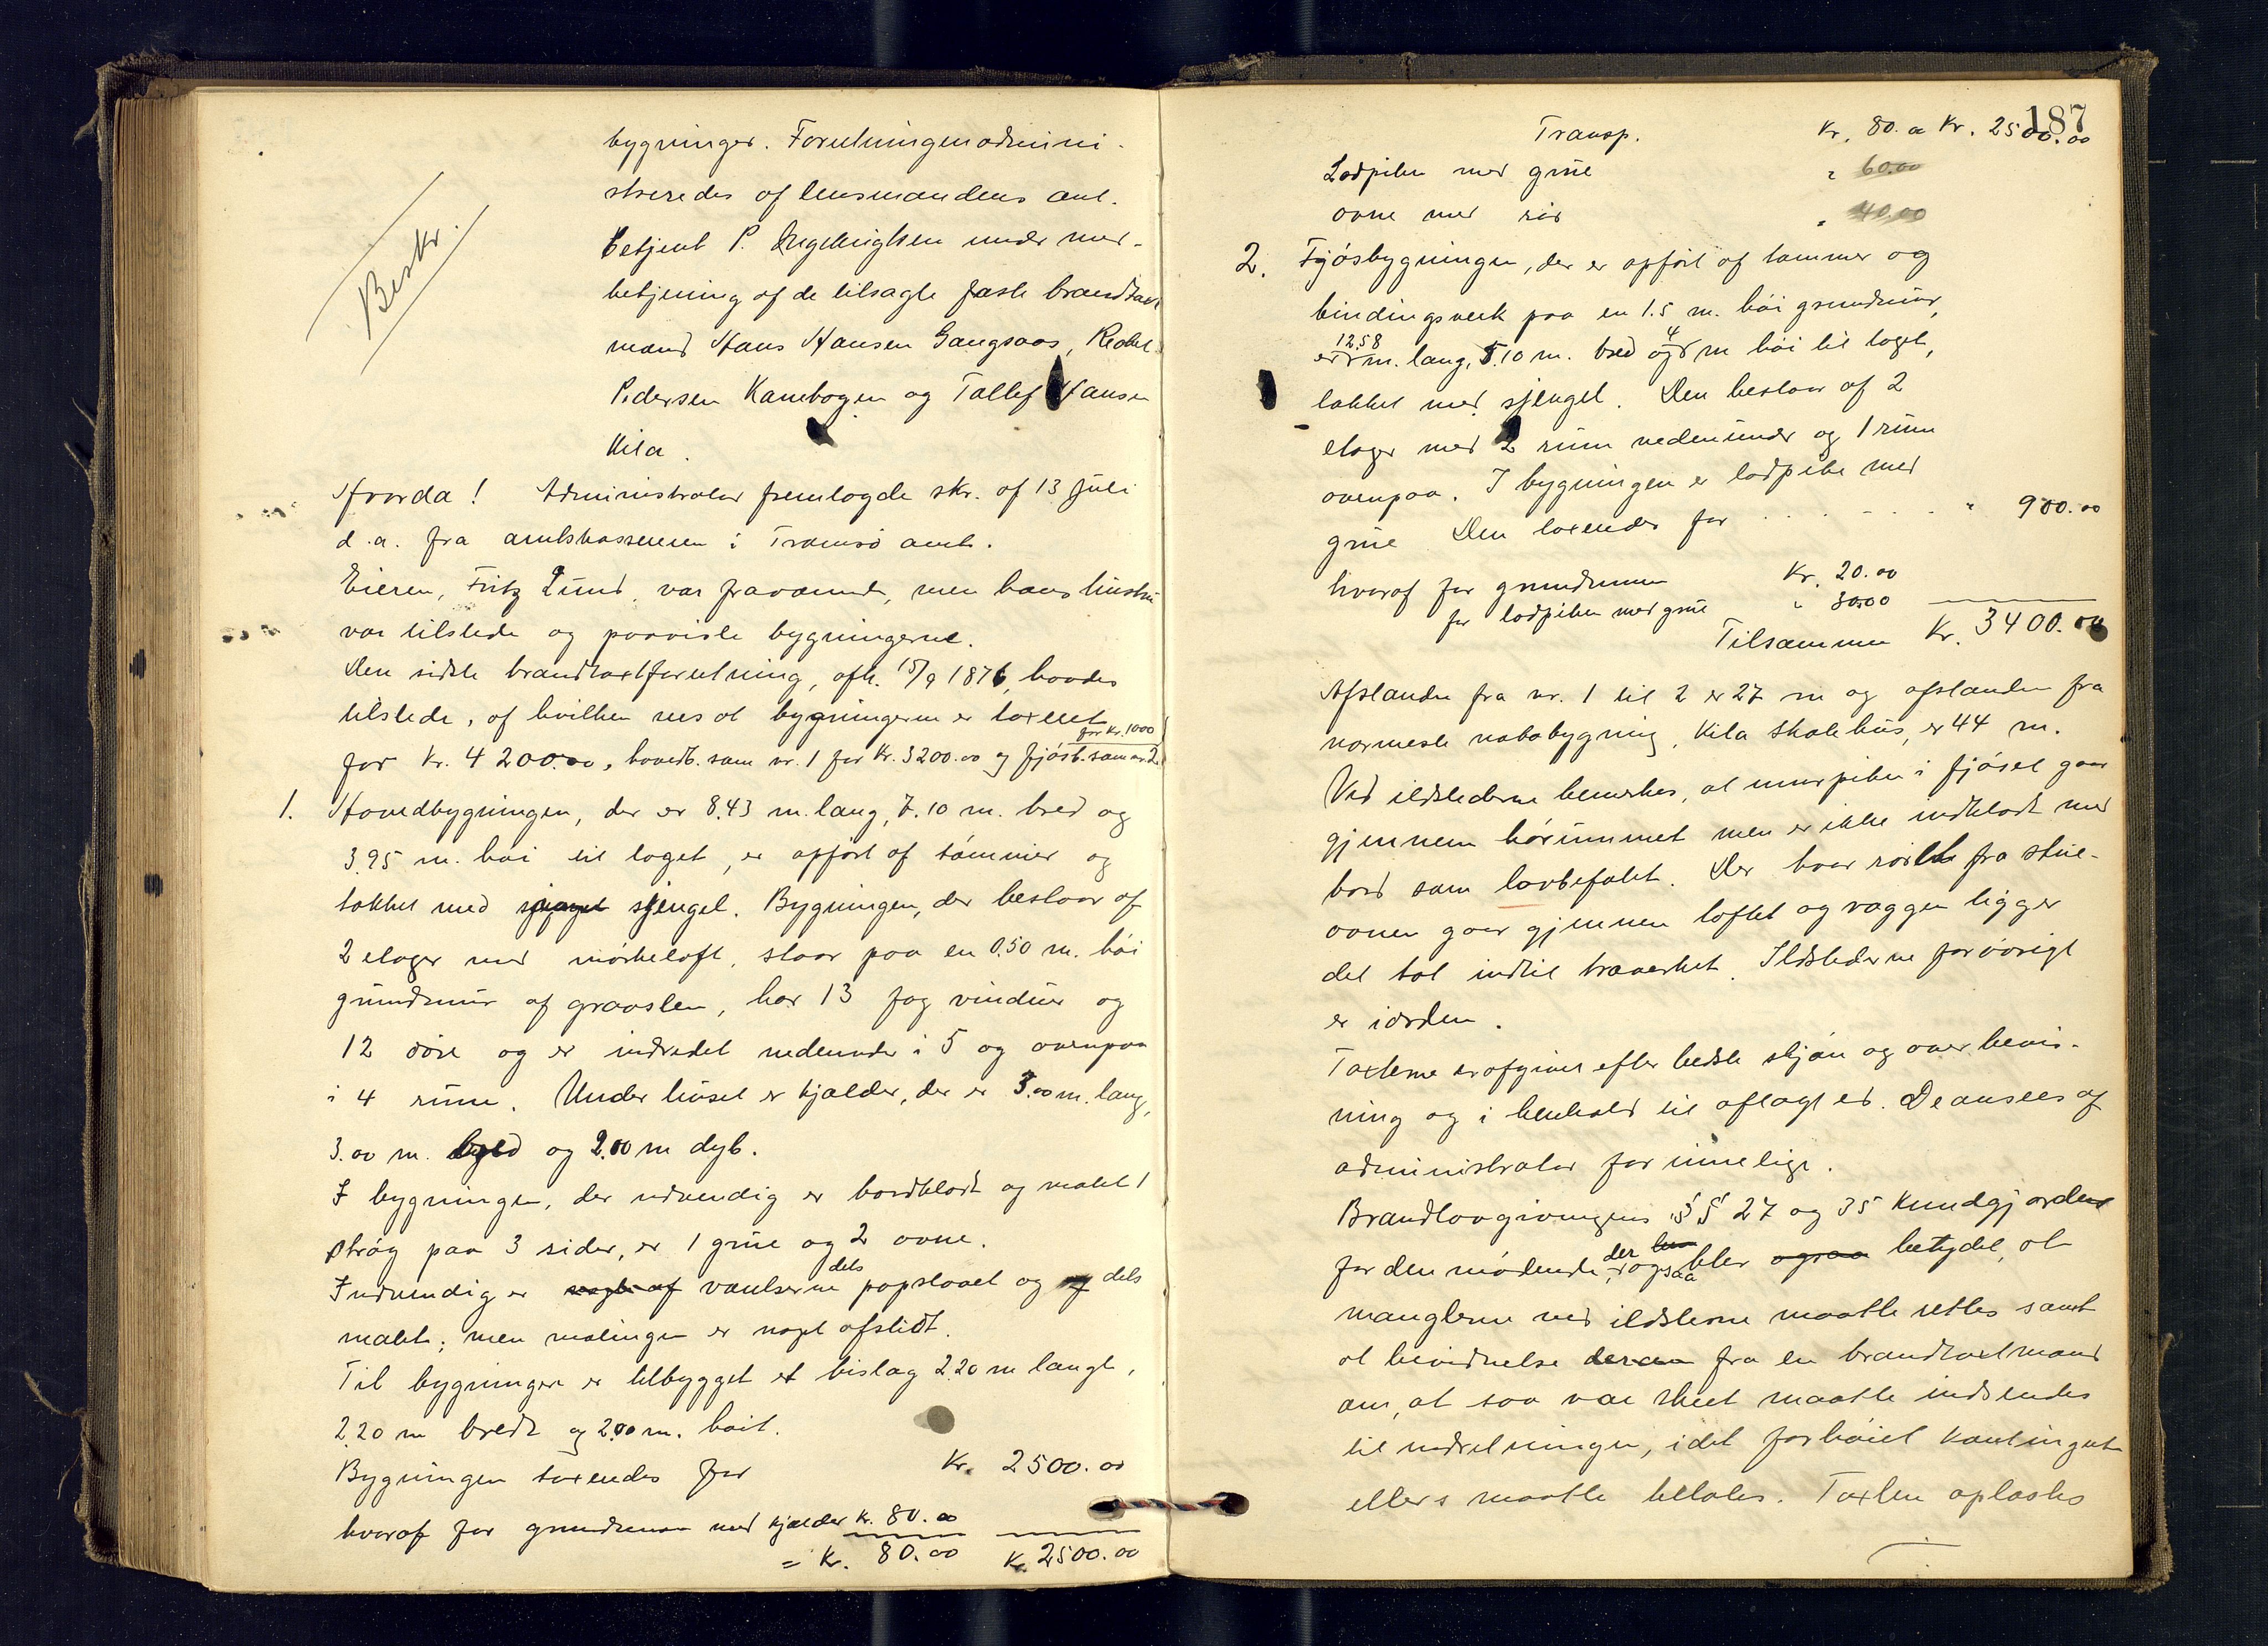 Beskr.
bygninger. Forretningen admini-
streredes af lensmandens aut.
betjent P. Ingebrigtsen under med-
betjening af de tilsagte faste brandtaxt
mænd Hans Hansen Gangsaas,
Pedersen Kanebogen og Tollef Hansen
Kila.
Hvorda! Administrator fremlagde skr. af 13 juli
d.a. fra amtskassereren i Tromsø amt.
Eieren, Fritz Lund, var fraværende, men hans hustru
var tilstede og paaviste bygningerne.
Den sidste brandtaxtforretning, afh. 15/9 1876, havdes
tilstede, af hvilken sees at bygningerne er taxeret
for Kr. 1000
for Kr. 4200.00, hovedb. som nr. 1 for Kr. 3200.00 og fjøsb. som nr. 2
1. Hovedbygningen, der er 8.43 m. lang, 7.10 m. bred og
3.95 m. høi til taget, er opført af tømmer og
tækket med sjengel. Bygningen, der bestaar af
2 etager med mørkeloft, staar paa en 0.50 m. høi
grundmur af graasten, har 13 fag vinduer og
12 døre og er indredet nedenunder i 5 og ovenpaa
i 4 rum. Under huset er kjælder, der er 3.00 m. lang,
3.00 m. bred og 2.00 m dyb.
I bygningen, der udvendig er bordklædt og malet 1
strøg paa 3 sider, er 1 grue og 2 ovne.
dels
Indvendig er værelserne papslaaet og dels
malet; men malingen er noget afslidt.
Til bygningen er tilbygget et bislag 2.20 m langt,
2.20 m bredt og 2.00 m. høit.
Bygningen taxeredes for Kr. 2500.00
hvoraf for grundmuren med kjælder Kr. 80.00
= Kr. 80.00 Kr. 2500.00
187
Transp. Kr. 80.00 Kr. 2500.00
Lodpiben med grue " 60.00
ovne med rør " 40.00
2. Fjøsbygningen, der er opført af tømmer og
bindingsverk paa en 1.5 m. høi grundmur,
12.58 4
er m. lang, 5.10 m. bred og m høi til taget,
tækket med sjengel. Den bestaar af 2
etager med 2 rum nedenunder og 1 rum
ovenpaa. I bygningen er lodpibe med
grue Den taxeredes for . . . . . " 900.00
hvoraf for grundmuren Kr. 20.00
for lodpiben med grue " 30.00
Tilsammen Kr. 3400.00
Afstanden fra nr. 1 til 2 er 27 m og afstanden fra
nærmeste nabobygning, Kila skolehus, er 44 m.
Ved ildstederne bemerkes, at murpiben i fjøset gaar
gjennem hørummet men er ikke indklædt med
bord som lovbefalet. Der hvor røret fra stue-
ovnen gaar gjennem loftet og væggen ligger
det tæt indtil træverket. Ildstederne forøvrigt
er iorden.
Taxterne er afgivne efter bedste skjøn og overbevis-
ning og i henhold til aflagt ed. De ansees af
administrator for rimelige.
Brandlovgivningens §§ 27 og 35 kundgjordes
der
for den mødende, ogsaa blev ogsaa betydet, at
manglerne ved ildstederne maatte rettes samt
at bevidnelse fra en brandtaxtmand
om, at saa var skeet maatte indsendes
til indretningen, idet forhøiet kontingent
ellers maatte betales. Taxten oplæstes